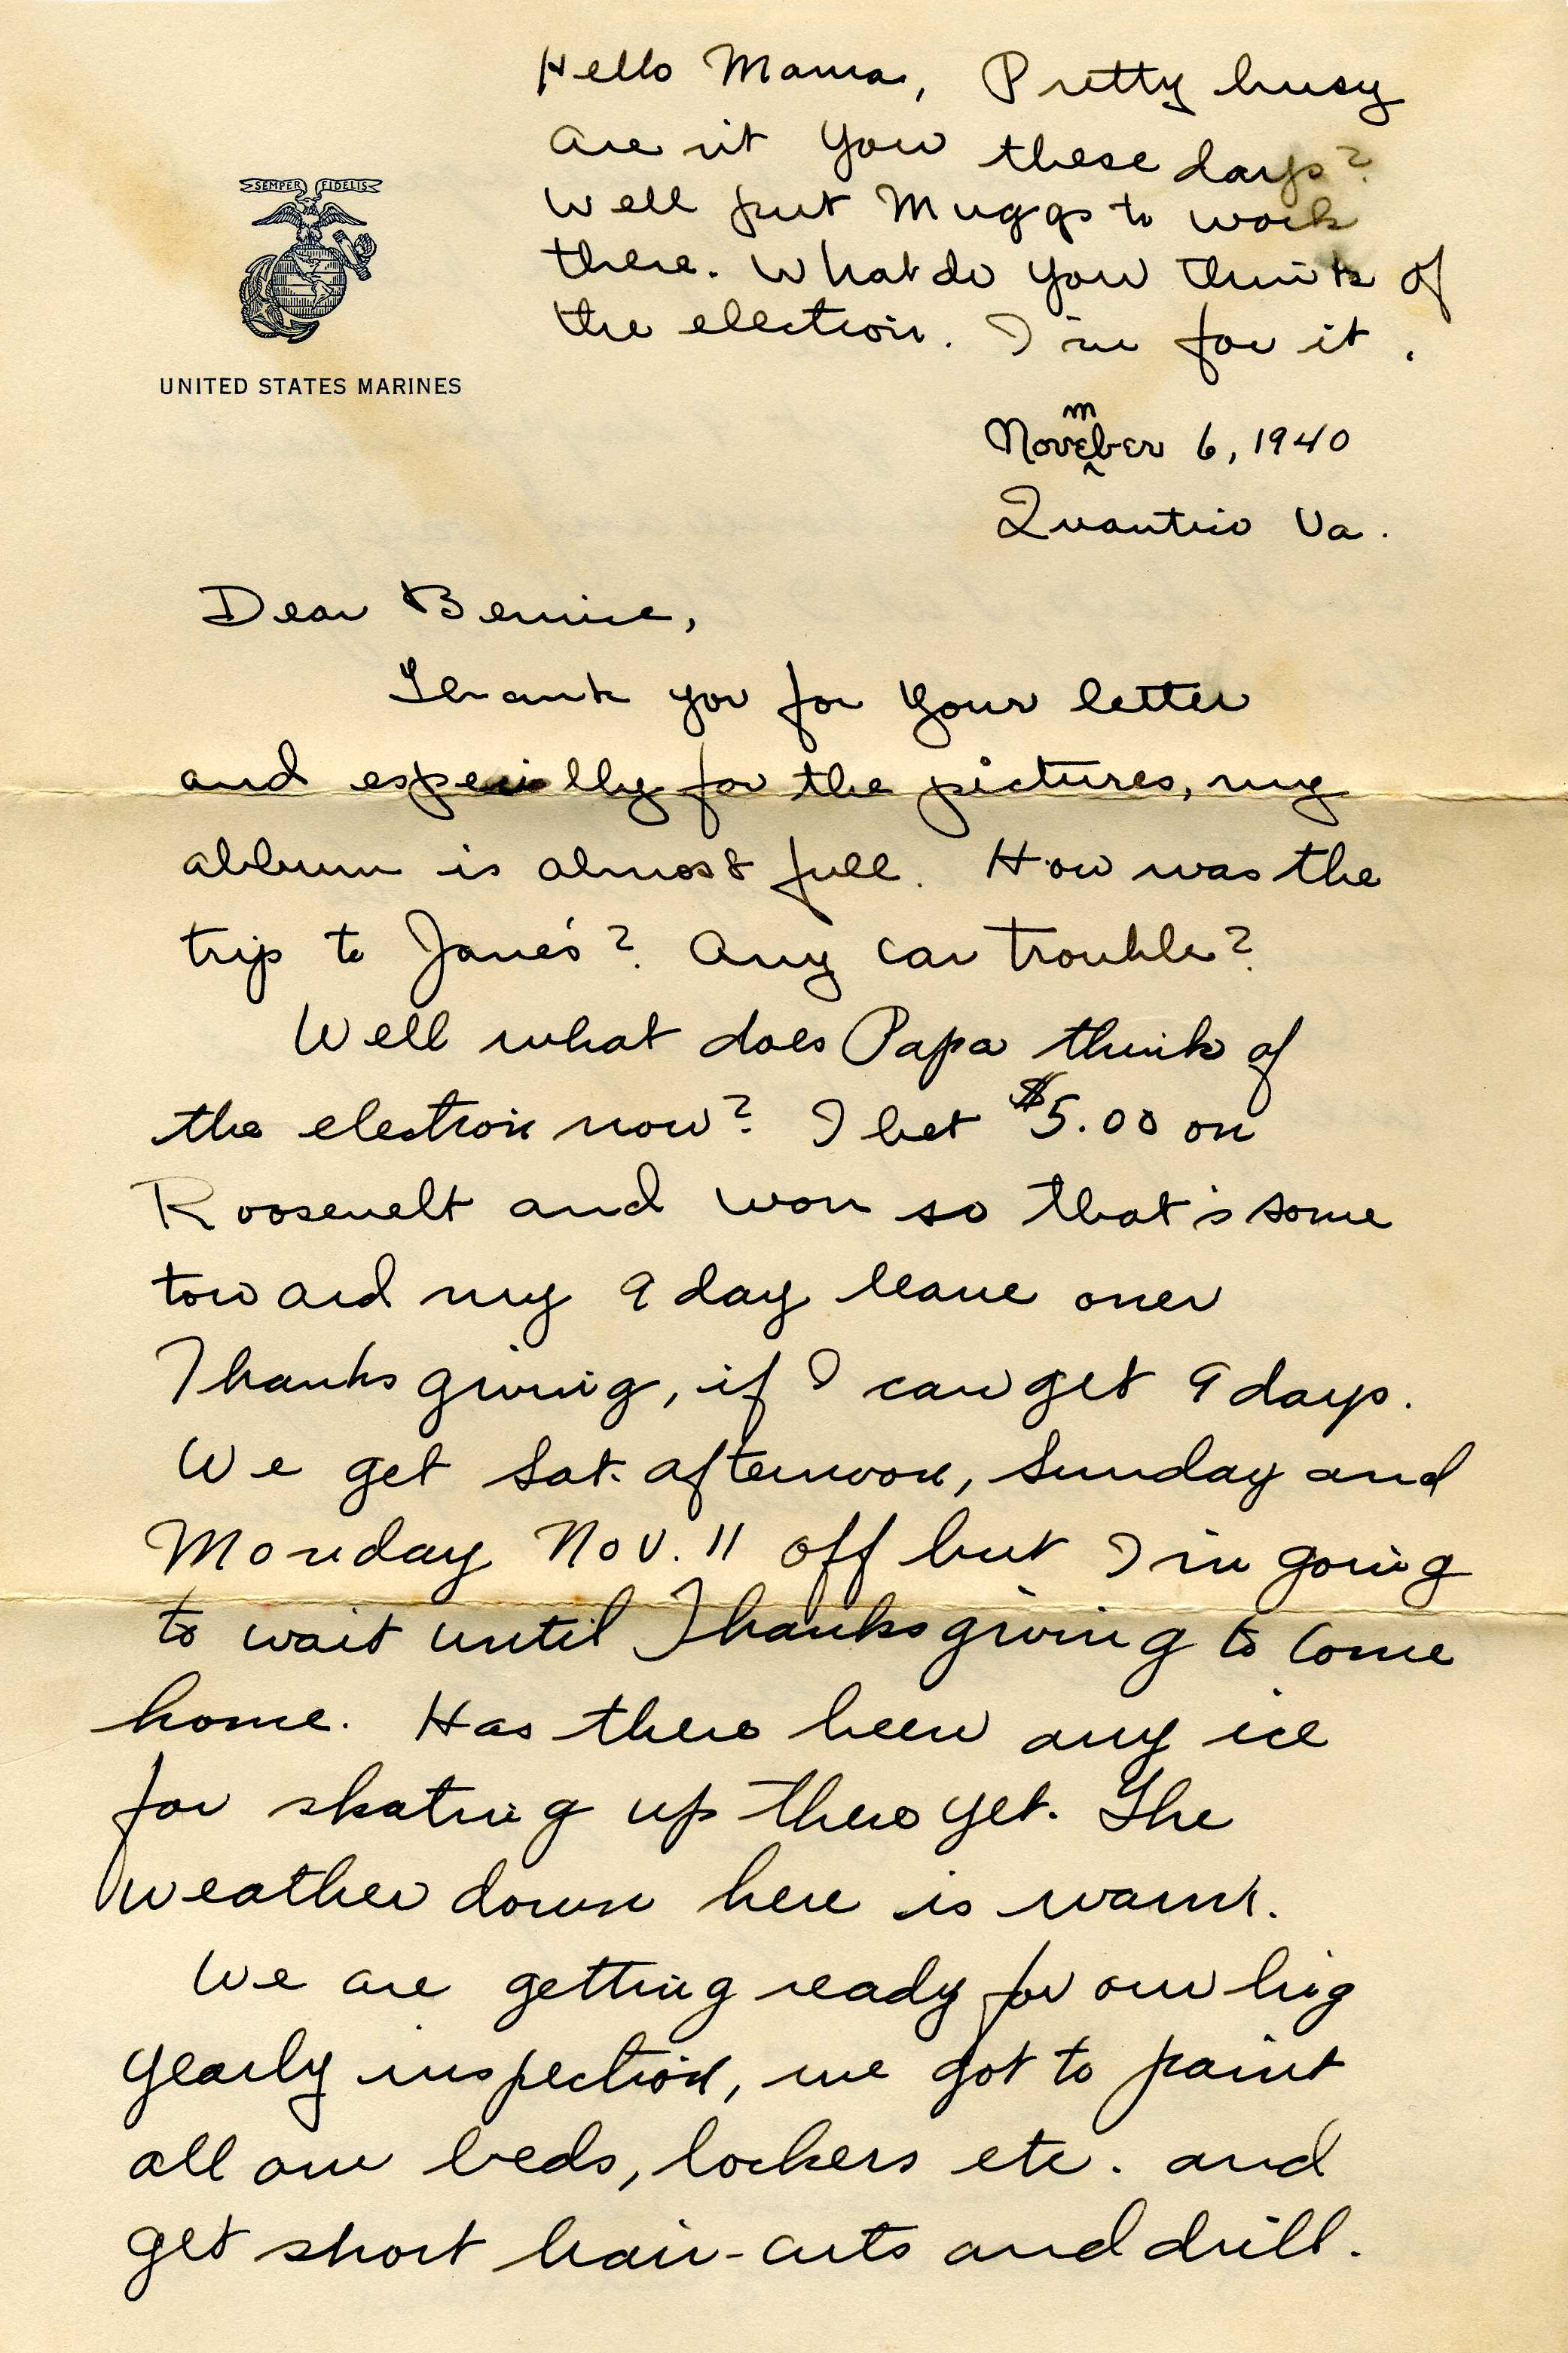 SEMPER FIDELIS
UNITED STATES MARINES
Hello Mama, Pretty busy
are n't you these days?
Well put Muggs to work
there. What do you think of
the election. I'm for it.
November 6, 1940
Quantico Va.
Dear Bernice,
Thank you for your letter
and especially for the pictures, my
album is almost full. How was the
trip to Jane's? Any car trouble?
Well what does Papa think of
the election now? I bet $5.00 on
Roosevelt and won so that's some
toward my 9 day leave over
Thanksgiving, if I can get 9 days.
We get Sat. afternoon, Sunday and
Monday Nov. 11 off but I'm going
to wait until Thanksgiving to come
home. Has there been any ice
for skating up there yet. The
weather down here is warm.
We are getting ready for our big
yearly inspection, we got to paint
all our beds, lockers etc. and
get short hair-cuts and drill.